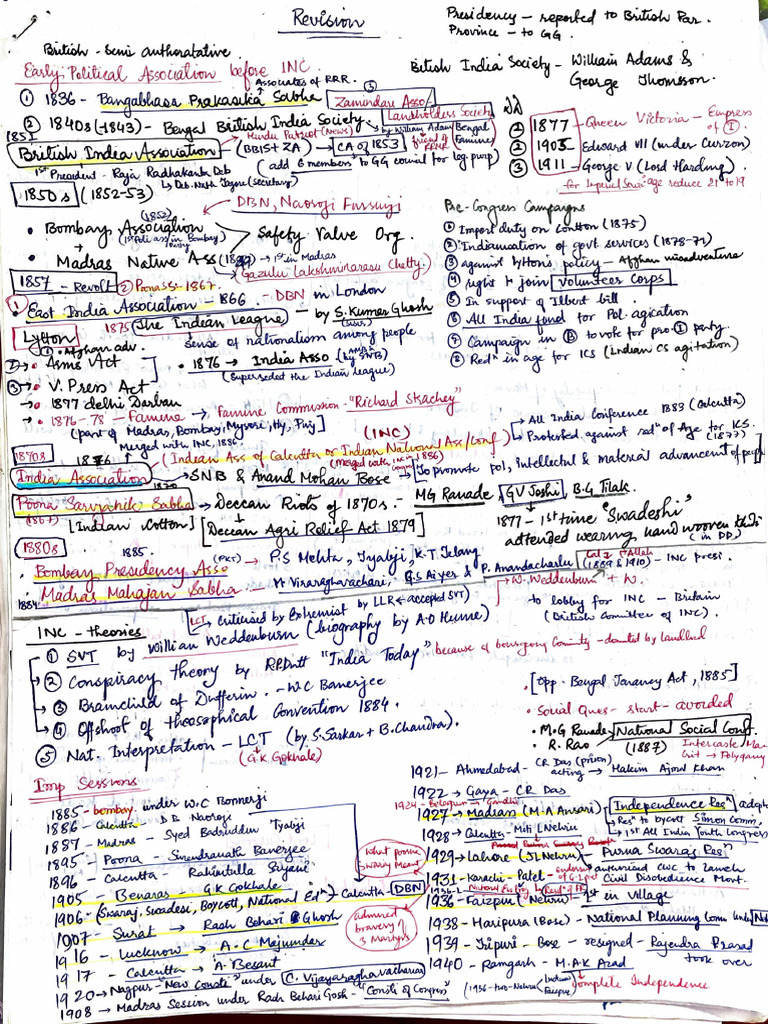 Revision
Presidency - reported to British Par.
Province - to GG.
British - Semi authoratative
Early Political Association before INC.
British India Society - William Adams &
George Thomsson.
Associates of RRR.
① 1836 - Bangabhasa Prakasika Sabha
Zamindari Asso-
Landholders Society
② 1840s (-1843) - Bengal British India Society
by William Adam
friend of RRMR
Bengal
Famine
1851
Hindu Patriot (News)
British India Association
(BBIS + ZA)
CA of 1853
(add 6 members to GG council for leg purp)
1st President - Raja Radhakanta Deb
Deb. Nath Tagore (Secretary)
① 1877 - Queen Victoria - Empress of I.
② 1903 - Edward VII (under Curzon)
③ 1911 - George V (Lord Harding)
age reduce 21 to 19
1850s (1852-53)
DBN, Naoroji Fursungi
(1852)
• Bombay Association
1st Poli ass in Bombay
Safety Valve Org.
• Madras Native Ass
1st in Madras
(Gazulu Lakshminarasu Chetty)
1857 - Revolt
② Poona SS - 1867.
① • East India Association - 1866 - DBN in London
1875 The Indian League - by S. Kumar Ghosh
sense of nationalism among people
Lytton
① • Afghan adv.
② • Arms Act
③ • V. Press Act
• 1877 delhi Darbar
• 1876 → India Asso (by SNB)
(Superseded the Indian league)
• 1876-78 - Famine → Famine Commission - "Richard Strachey"
(part of Madras, Bombay, Mysore, Hy, Punj)
Pre-Congress Campaigns
① Import duty on Cotton (1875)
② Indianisation of govt. services (1878-79)
③ against Lytton's policy - Afghan misadventure
④ right to join Volunteer Corps
⑤ In support of Ilbert bill.
⑥ All India fund for Pol. agitation
⑦ Campaign in B to vote for pro-I party.
⑧ Redn in age for ICS (Indian CS agitation)
Merged with INC, 1886
(INC)
All India Conference 1883 (Calcutta)
Protested against redn of Age for ICS.
(1877)
1870s
1876
(Indian Ass of Calcutta or Indian National Ass/Conf)
India Association
SNB & Anand Mohan Bose
(Merged with INC in 1886)
To promote pol, intellectual & material advancement of people
1870
Poona Sarvajanik Sabha → Deccan Riots of 1870s. - MG Ranade, GV Joshi, B.G Tilak.
(1867)
[Indian Cotton]
[Deccan Agri Relief Act 1879]
1877 - 1st time "Swadeshi"
attended wearing hand wooven khadi
(in DD)
1880s
1885.
• Bombay Presidency Asso → P.S Mehta, Tyabji, K.T. Telang
1884
• Madras Mahajan Sabha - M Viraraghavachari, G.S Aiyer & P. Anandacharlu
- INC presi.
W. Weddenburn + W.
to lobby for INC - Britain
(British Committee of INC).
INC - theories
LCT criticised by Extremist by LLR ← accepted SVT
① SVT by William Weddenburn (biography by A.O Hume)
② Conspiracy theory by R.P. Dutt "India Today"
③ Brainchild of Dufferin. - W.C Banerjee
④ Offshoot of theosophical Convention 1884.
⑤ Nat. Interpretation - LCT (by S. Sarkar + B. Chandra).
(G.K Gokhale)
• [Opp. Bengal Tanancy Act, 1885]
• Social Ques - start - avoided
• M.G Ranade
• R. Rao
National Social Conf.
(1887)
Polygamy
Imp Sessions
1885 - bombay. under W.C Bonnerji
1886 - Calcutta - D.B Naoroji
1887 - Madras - Syed Badruddin Tyabji
1895 - Poona - Surendranath Banerjee
1896 - Calcutta - Rahimtulla Siyani
1905 - Benaras - G.K Gokhale
1906 - (Swaraj, Swadesi, Boycott, National Edn) - Calcutta - DBN
1907 - Surat → Rash Behari Ghosh
1916 - Lucknow → A.C Majumdar
1917 - Calcutta → A. Besant
1920 → Nagpur - New Consti" under C. Vijayaraghavachariar
1908 → Madras Session under Rash Behari Gosh - "Consti of Congress"
admired
bravery of
3 Martyrs
1921 - Ahmedabad - CR Das (prison)
acting → Hakim Ajmal Khan
1922 → Gaya - CR Das
1924 - Belagaum - Gandhi
1927 → Madras (M.A Ansari)
Independence Resn
Resn to boycott Simon Comm.
1st All India Youth Congress
1928 - Calcutta - Moti L Nehru
1929 → Lahore (JL Nehru) → Purna Swaraj Resn
1931 - Karachi - Patel -
Civil Disobedience Movt.
1936 - Faizpur (Nehru) - 1st in Village
1938 - Haripura (Bose) - National Planning Comm
1939 - Tripuri - Bose - resigned - Rajendra Prasad
took over
1940 - Ramgarh - M.A.K Azad
Complete Independence